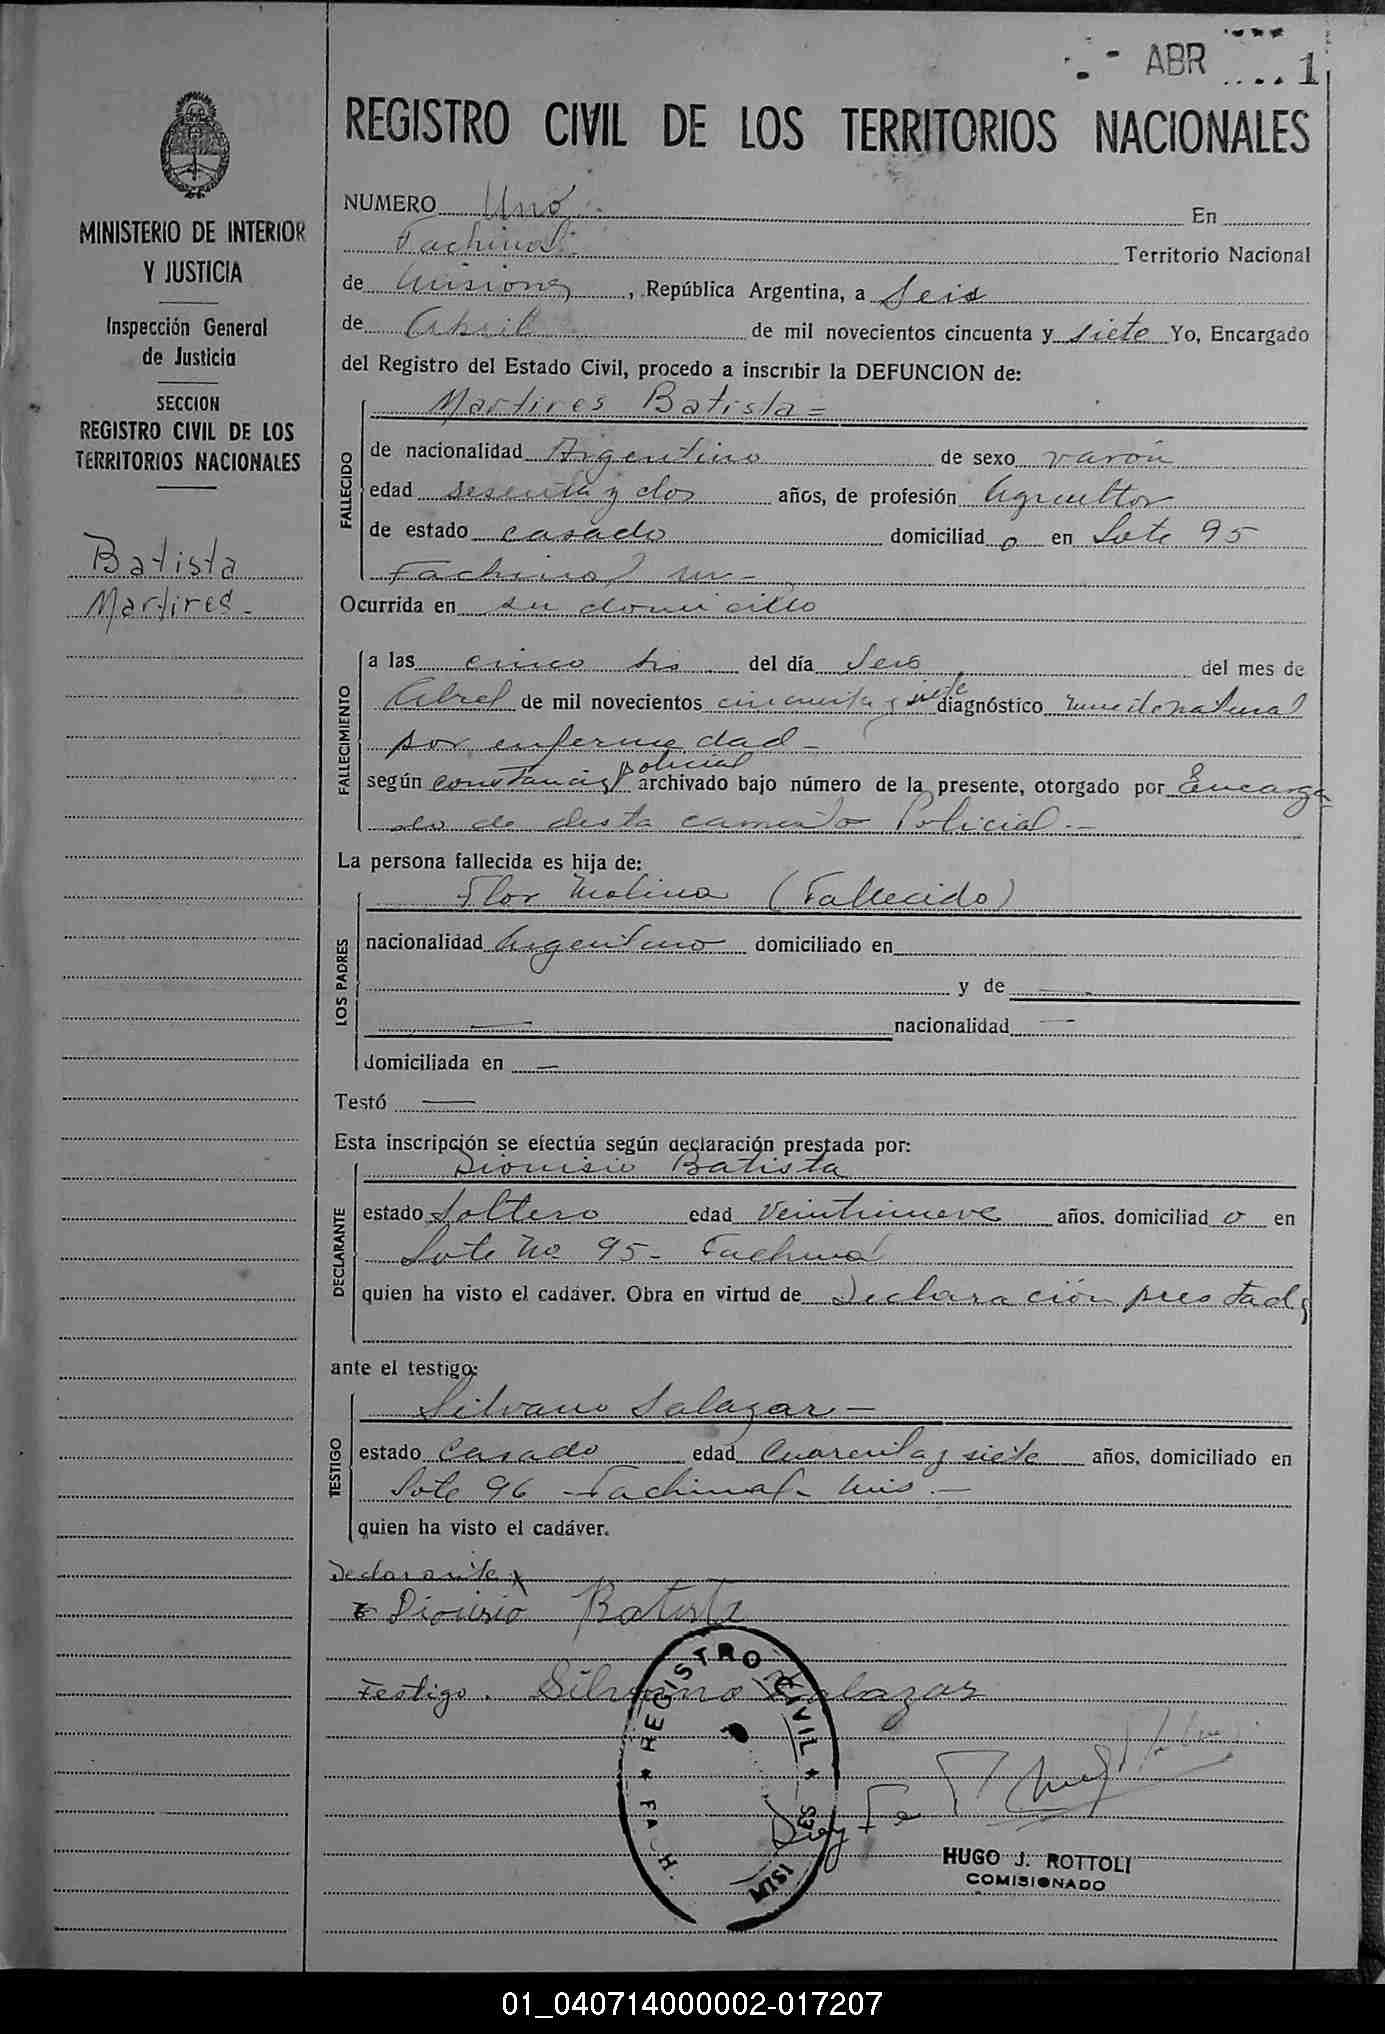 - - ABR 1
REGISTRO CIVIL DE LOS TERRITORIOS NACIONALES
MINISTERIO DE INTERIOR
Y JUSTICIA
Inspección General
de Justicia
SECCION
REGISTRO CIVIL DE LOS
TERRITORIOS NACIONALES
Batista
Martires -
NUMERO Uno En
Fachinal Territorio Nacional
de Misiones, República Argentina, a Seis
de Abril de mil novecientos cincuenta y siete Yo, Encargado
del Registro del Estado Civil, procedo a inscribir la DEFUNCION de:
Martires Batista =
FALLECIDO
de nacionalidad Argentino de sexo varón
edad sesenta y dos años, de profesión Agricultor
de estado casado domiciliad o en Lote 95
Fachinal
Ocurrida en su domicilio
FALLECIMIENTO
a las cinco hs del día Seis del mes de
Abril de mil novecientos cincuenta y siete diagnóstico natural
por enfermedad -
según constancia policial archivado bajo número de la presente, otorgado por Encarga
do de destacamento Policial. -
La persona fallecida es hija de:
LOS PADRES
Flor Molina (Fallecido)
nacionalidad Argentino domiciliado en
y de —
— nacionalidad —
domiciliada en —
Testó —
Esta inscripción se efectúa según declaración prestada por:
DECLARANTE
Dionisio Batista
estado Soltero edad Veintinueve años, domiciliad o en
Lote No 95 - Fachinal
quien ha visto el cadáver. Obra en virtud de Declaración prestada
ante el testigo:
TESTIGO
Silvano Salazar -
estado Casado edad Cuarenta y siete años, domiciliado en
Lote 96 - Fachinal - Mis. -
quien ha visto el cadáver.
Declarante
Dionisio Batista
Testigo. Silvano Salazar
REGISTRO CIVIL
Doy Fe
HUGO J. ROTTOLI
COMISIONADO
01_040714000002-017207